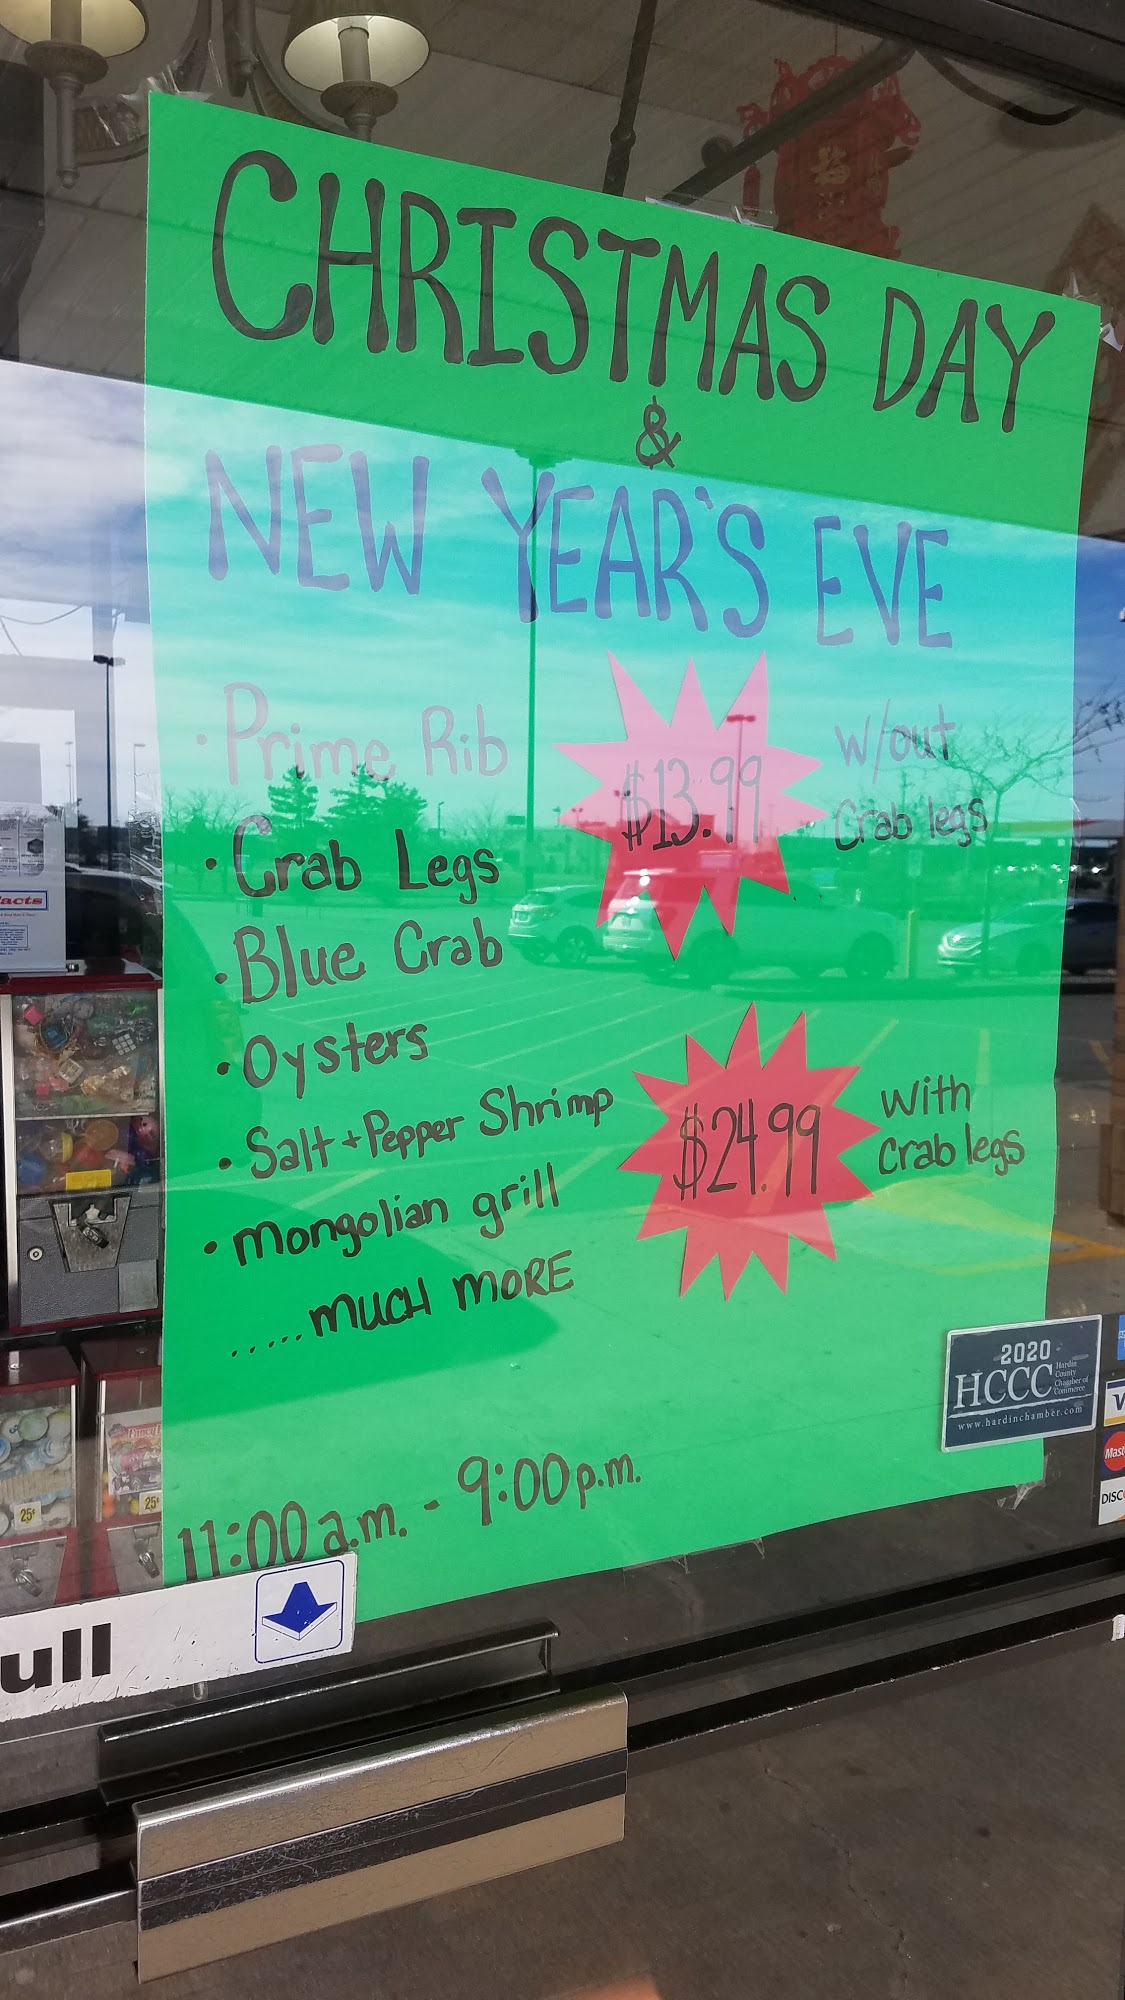 CHRISTMAS DAY
&
NEW YEAR'S EVE
• Prime Rib
$13.99
w/out
Crab legs
• Crab Legs
• Blue Crab
• Oysters
• Salt + Pepper Shrimp
$24.99
with
Crab legs
• Mongolian grill
.....MUCH MORE
11:00 a.m. - 9:00 p.m.
2020
HCCC
Hardin
County
Chamber of
Commerce
www.hardinchamber.com
ull
25¢
25¢
DISC
福